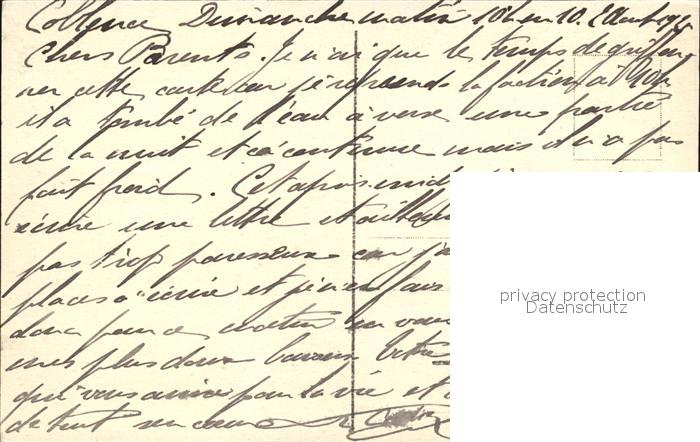 Dimanche matin 10h en 10.
Chers Parents. Je n'ai que le temps de griffon
ner cette carte car je reprends la faction à 10h
il a tombé de l'eau à verse une partie
de la nuit et ça continue mais il n'a pas
fait froid. Cet après-midi
écrire une lettre et
pas trop paresseux car j'
places à écrire et j'en fais
donc pour ce matin en vous
mes plus doux baisers Votre
qui vous aime pour la vie et
de tout son cœur
privacy protection
Datenschutz